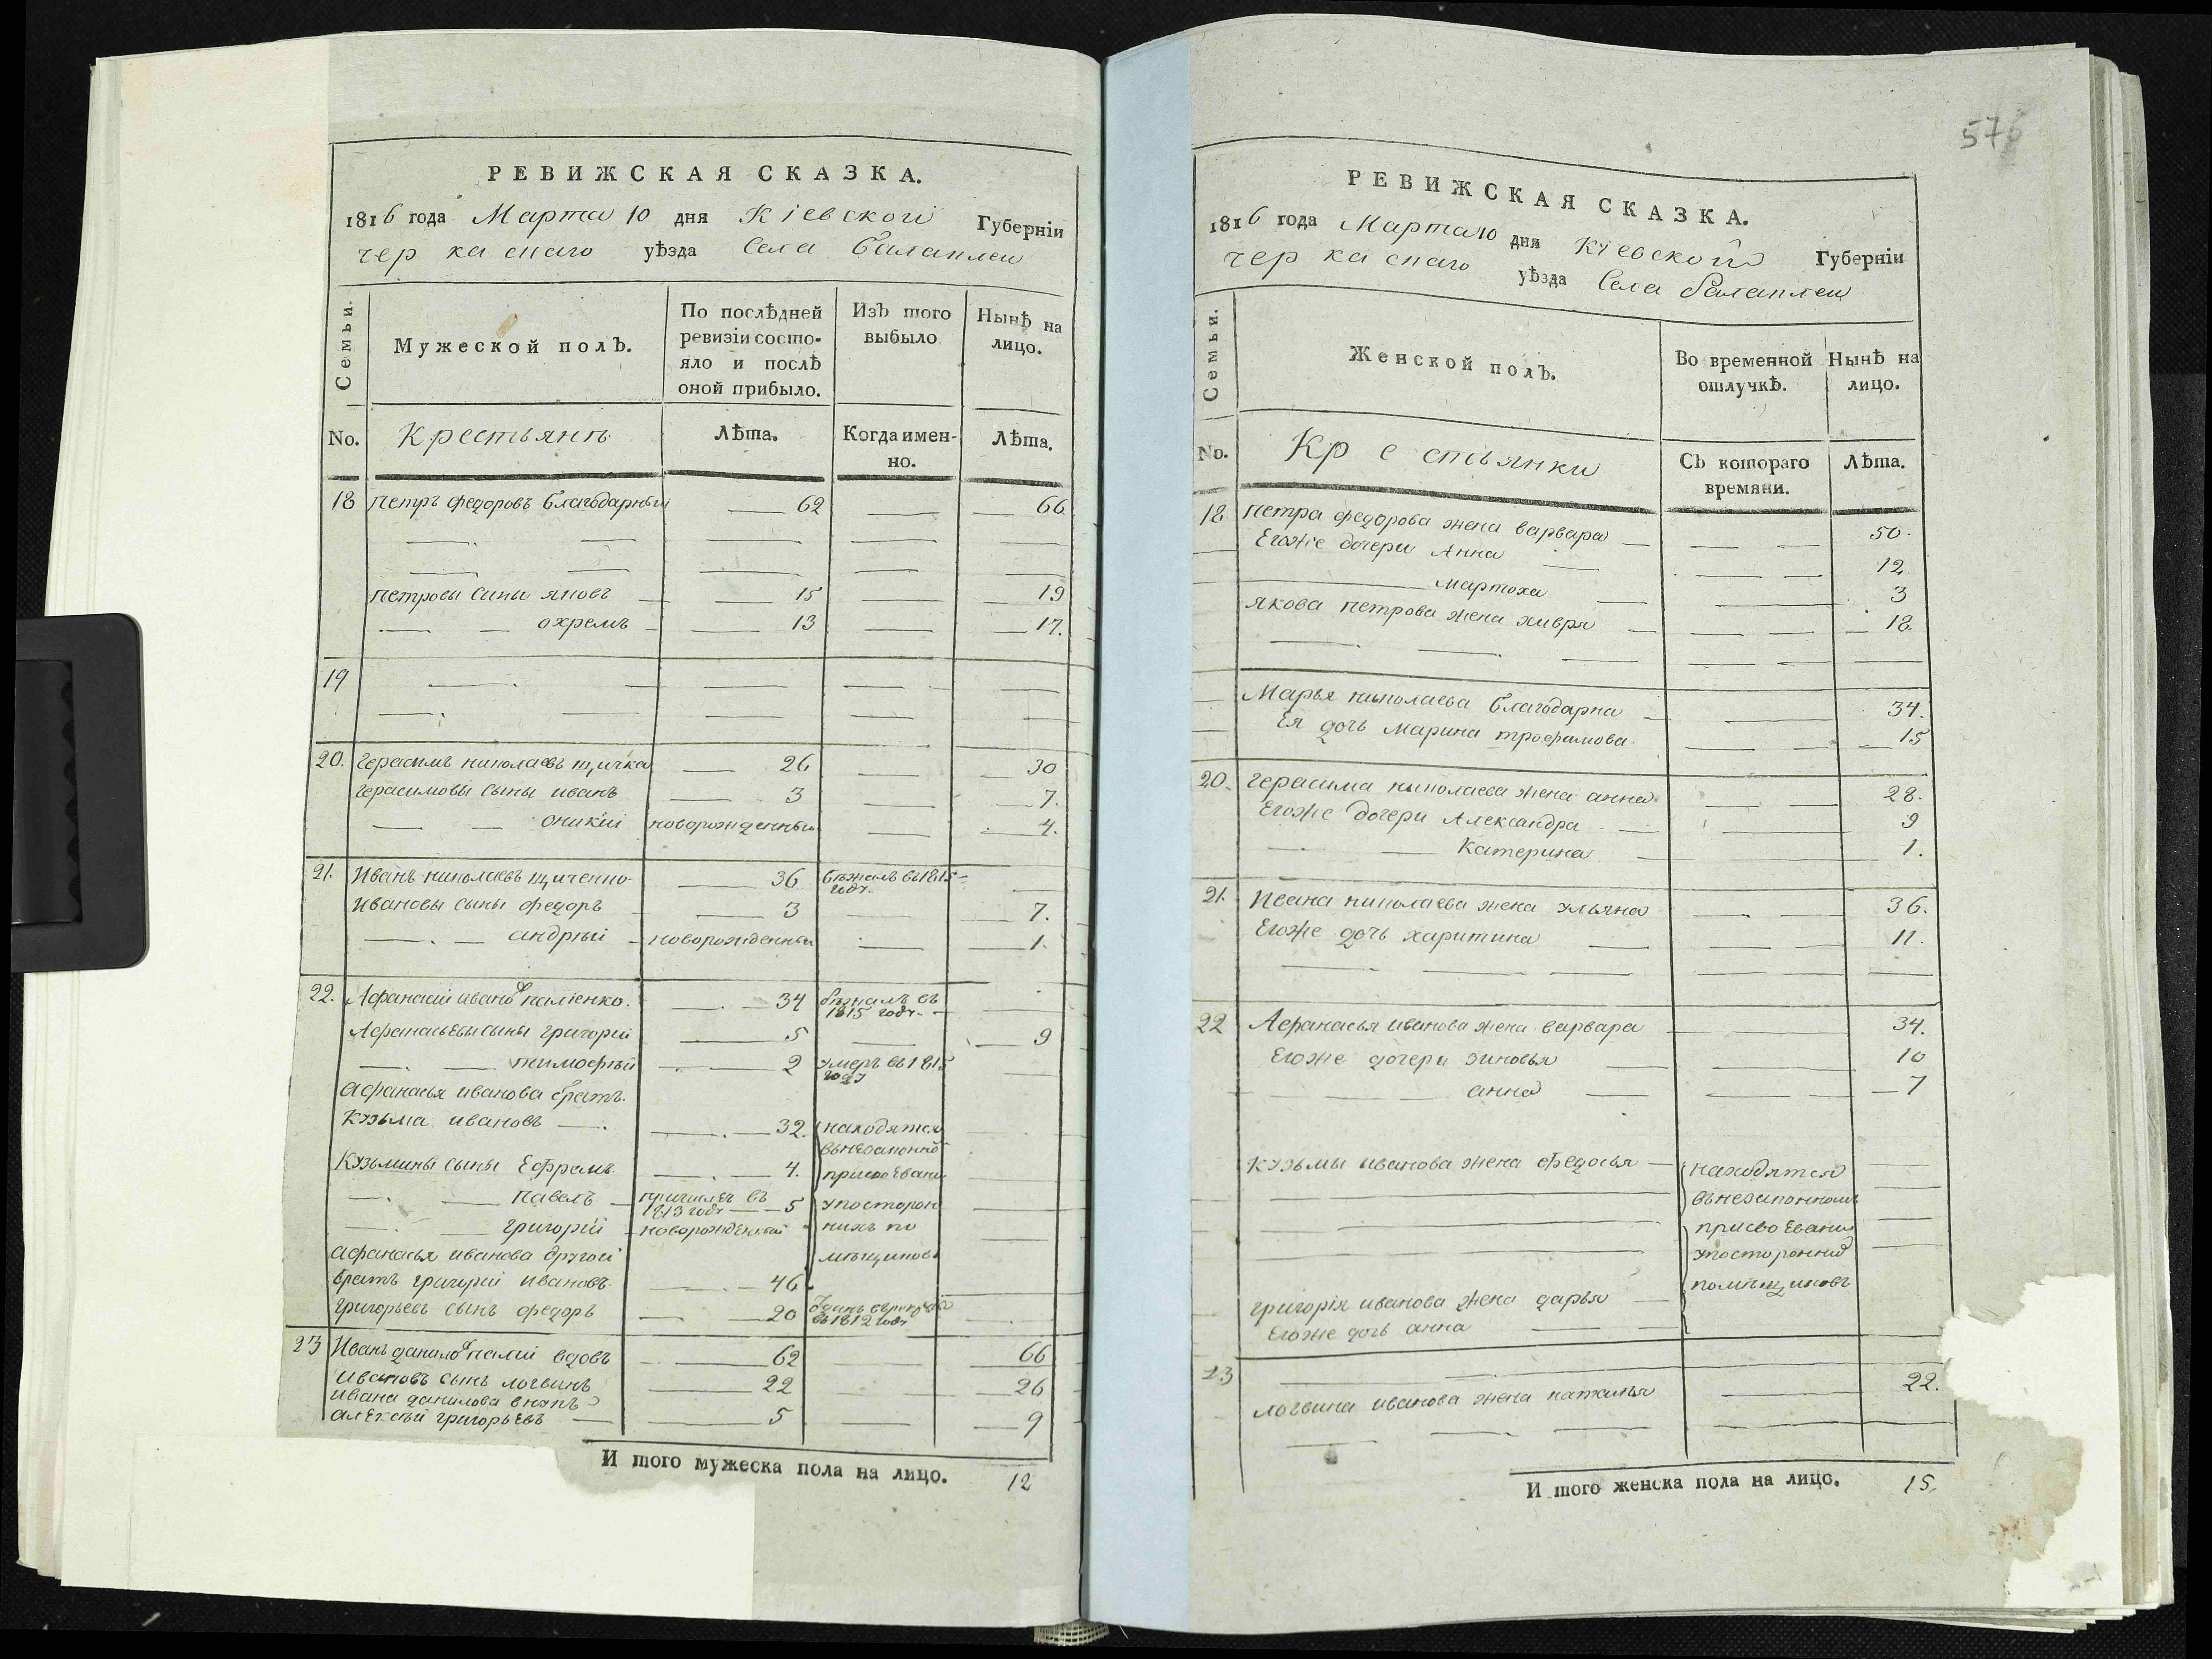 РЕВИЖСКАЯ СКАЗКА.
1816 года Марта 10 дня Кіевской Губерніи
черкаскаго уѣзда Села Балаклеи
Семьи.
Мужеской полъ.
По послѣдней ревизіи состояло и послѣ оной прибыло.
Изъ того выбыло
Нынѣ на лицо.
No. Крестьянъ Лѣта. Когда именно. Лѣта.
18 Петръ федоровъ благодарный 62 66
петровы сины яковъ 15 19
охремъ 13 17.
19
20. герасимъ николаевъ щичка 26 30
герасимовы сыны иванъ 3 7.
оникій новорожденный 4.
21. Иванъ николаевъ щиченко 36 бежалъ въ 1815 году.
Ивановы сыны федоръ 3 7.
андрѣй новорожденный 1.
22. Афанасій ивановъ паліенко. 34 бѣжалъ въ 1815 году.
Афанасьевы сыны григорій 5 9
тимофѣй 2 умеръ въ 1815 году
афанасья иванова братъ.
кузьма ивановъ 32. находятся
въ незаконно
Кузьмины сыны Ефремъ 4. присвоЕвани
павелъ причисленъ въ 1813 году 5 упосторон
григорій новорожденный нихъ по
афанасья иванова другой мѣщиковъ
братъ григорій ивановъ. 46
григорьевъ сынъ федоръ 20 въ 1812 году
23 Иванъ даниловъ палій вдовъ 62 66
ивановъ сынъ логвинъ 22 26
ивана данилова внукъ
алЕксѣй григорьЕвъ 5 9
И того мужеска пола на лицо. 12
576
РЕВИЖСКАЯ СКАЗКА.
1816 года Марта 10 дня Кіевской Губерніи
черкаскаго уѣзда Села балаклеи
Семьи.
Женской полъ.
Во временной отлучкѣ.
Нынѣ на лицо.
No. Крестьянки Съ котораго времяни. Лѣта.
18 Петра федорова жена варвара 50.
Егоже дочери Анна 12
мартоха 3
якова петрова жена хивря 18
Марья николаева благодарна 34.
Ея дочь марина трофимова. 15
20. герасима николаева жена анна 28.
Егоже дочери Александра 9
Катерина 1.
21. Ивана николаева жена ульяна 36.
Егоже дочь харитина 11.
22 Афанасья иванова жена варвара 34.
Егоже дочери зиновья 10
анна 7
кузьмы иванова жена федосья находятся
въ незаконномъ
присвоЕвани
упосторонни
помѣщиковъ
григорія иванова жена дарья
Егоже дочь анна
23
логвина иванова жена наталья 22.
И того женска пола на лицо. 15.